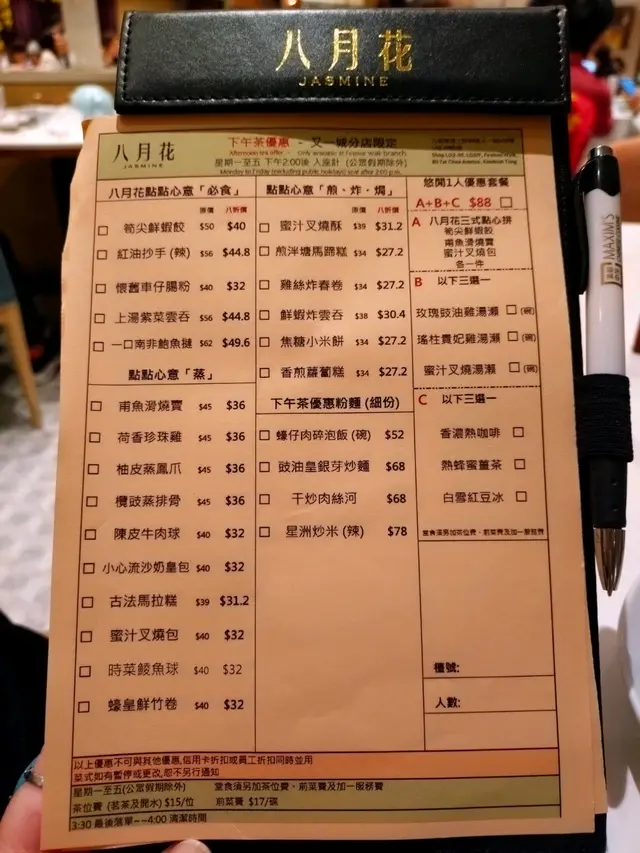 八月花
JASMINE
八月花
JASMINE
下午茶優惠 - 又一城分店限定
Afternoon tea offer - Only available at Festival Walk branch
星期一至五 下午2:00後 入座計 (公眾假期除外)
Monday to Friday (excluding public holidays) seat after 2:00 p.m.
八月花點點心意「必食」
原價 八折價
筍尖鮮蝦餃 $50 $40
紅油抄手 (辣) $56 $44.8
懷舊車仔腸粉 $40 $32
上湯紫菜雲吞 $56 $44.8
一口南非鮑魚撻 $62 $49.6
點點心意「蒸」
甫魚滑燒賣 $45 $36
荷香珍珠雞 $45 $36
柚皮蒸鳳爪 $45 $36
欖豉蒸排骨 $45 $36
陳皮牛肉球 $40 $32
小心流沙奶皇包 $40 $32
古法馬拉糕 $39 $31.2
蜜汁叉燒包 $40 $32
時菜鯪魚球 $40 $32
蠔皇鮮竹卷 $40 $32
點點心意「煎、炸、焗」
原價 八折價
蜜汁叉燒酥 $39 $31.2
煎泮塘馬蹄糕 $34 $27.2
雞絲炸春卷 $34 $27.2
鮮蝦炸雲吞 $38 $30.4
焦糖小米餅 $34 $27.2
香煎蘿蔔糕 $34 $27.2
下午茶優惠粉麵 (細份)
蠔仔肉碎泡飯 (碗) $52
豉油皇銀芽炒麵 $68
干炒肉絲河 $68
星洲炒米 (辣) $78
悠閒1人優惠套餐
A+B+C $88
A 八月花三式點心拼
筍尖鮮蝦餃
甫魚滑燒賣
蜜汁叉燒包
各一件
B 以下三選一
玫瑰豉油雞湯瀨 (碗)
瑤柱貴妃雞湯瀨 (碗)
蜜汁叉燒湯瀨 (碗)
C 以下三選一
香濃熱咖啡
熱蜂蜜薑茶
白雪紅豆冰
堂食須另加茶位費、前菜費及加一服務費
檯號:
人數:
以上優惠不可與其他優惠,信用卡折扣或員工折扣同時並用
菜式如有暫停或更改,恕不另行通知
星期一至五(公眾假期除外) 堂食須另加茶位費、前菜費及加一服務費
茶位費 (茗茶及開水) $15/位 前菜費 $17/碟
3:30 最後落單~~4:00 清潔時間
MAXIM'S